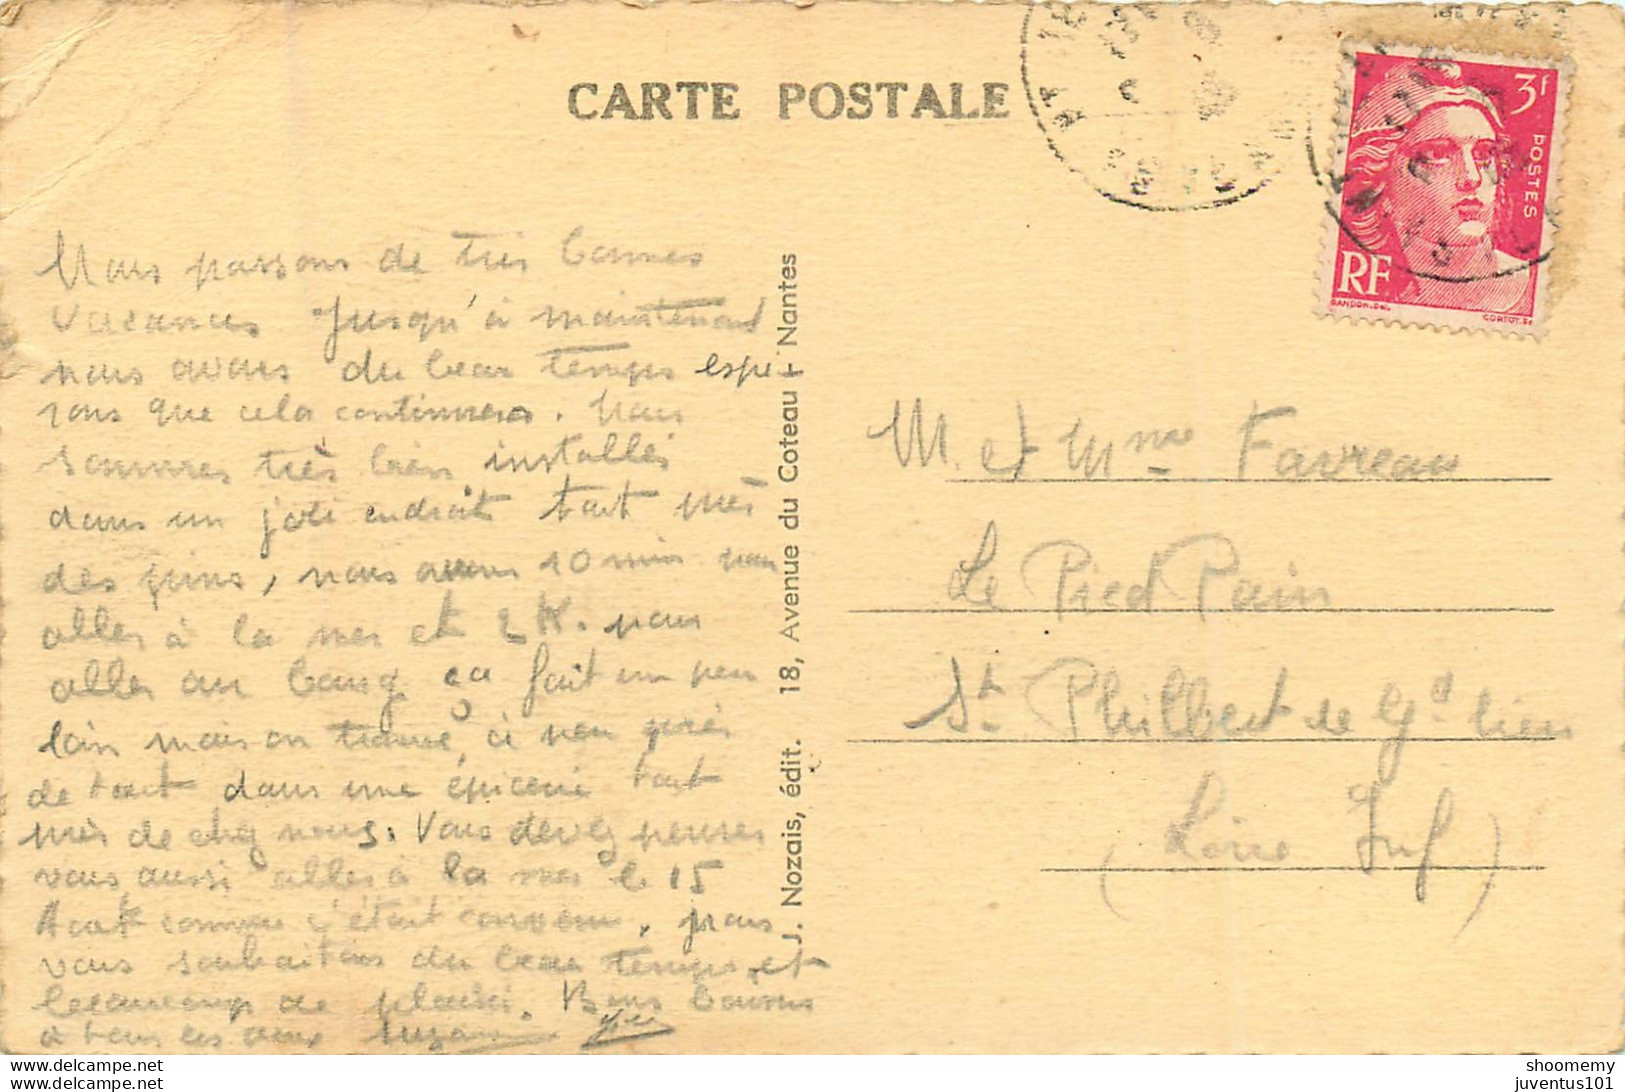 CARTE POSTALE
3f
POSTES
RF
GANDON.Del.
CORTOT.Sc
Nous passons de très bonnes
vacances Jusqu'à maintenant
nous avons du beau temps espe-
rons que cela continuera. Nous
sommes très bien installés
dans un joli endroit tout près
des pins, nous avons 10 min pour
aller à la mer et 2 K. pour
aller au bourg ça fait un peu
loin mais on trouve à peu près
de tout dans une épicerie tout
près de chez nous. Vous devez penser
vous aussi aller à la mer le 15
Aout comme c'était convenu, nous
vous souhaitons du beau temps et
beaucoup de plaisir. Bons baisers
à tous les deux Suzanne
J. Nozais, édit. 18, Avenue du Coteau - Nantes
M. et Mme Favreau
Le Pied Pain
St Philbert de Gd lieu
(Loire Inf)
shoomemy
juventus101